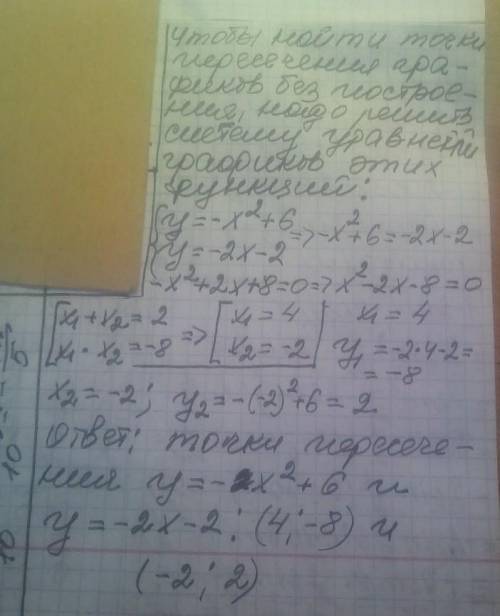 Чтобы найти точки
пересечения гра-
фиков без построе-
ния, надо решить
систему уравнений
графиков этих
функций:
{y = -x² + 6
{y = -2x - 2 => -x² + 6 = -2x - 2
-x² + 2x + 8 = 0 => x² - 2x - 8 = 0
[x₁ + x₂ = 2 => [x₁ = 4 x₁ = 4
[x₁ · x₂ = -8 [x₂ = -2 y₁ = -2·4-2=
= -8
x₂ = -2; y₂ = -(-2)² + 6 = 2
Ответ: точки пересече-
ния y = -x² + 6 и
y = -2x - 2: (4; -8) и
(-2; 2)
5
10
10